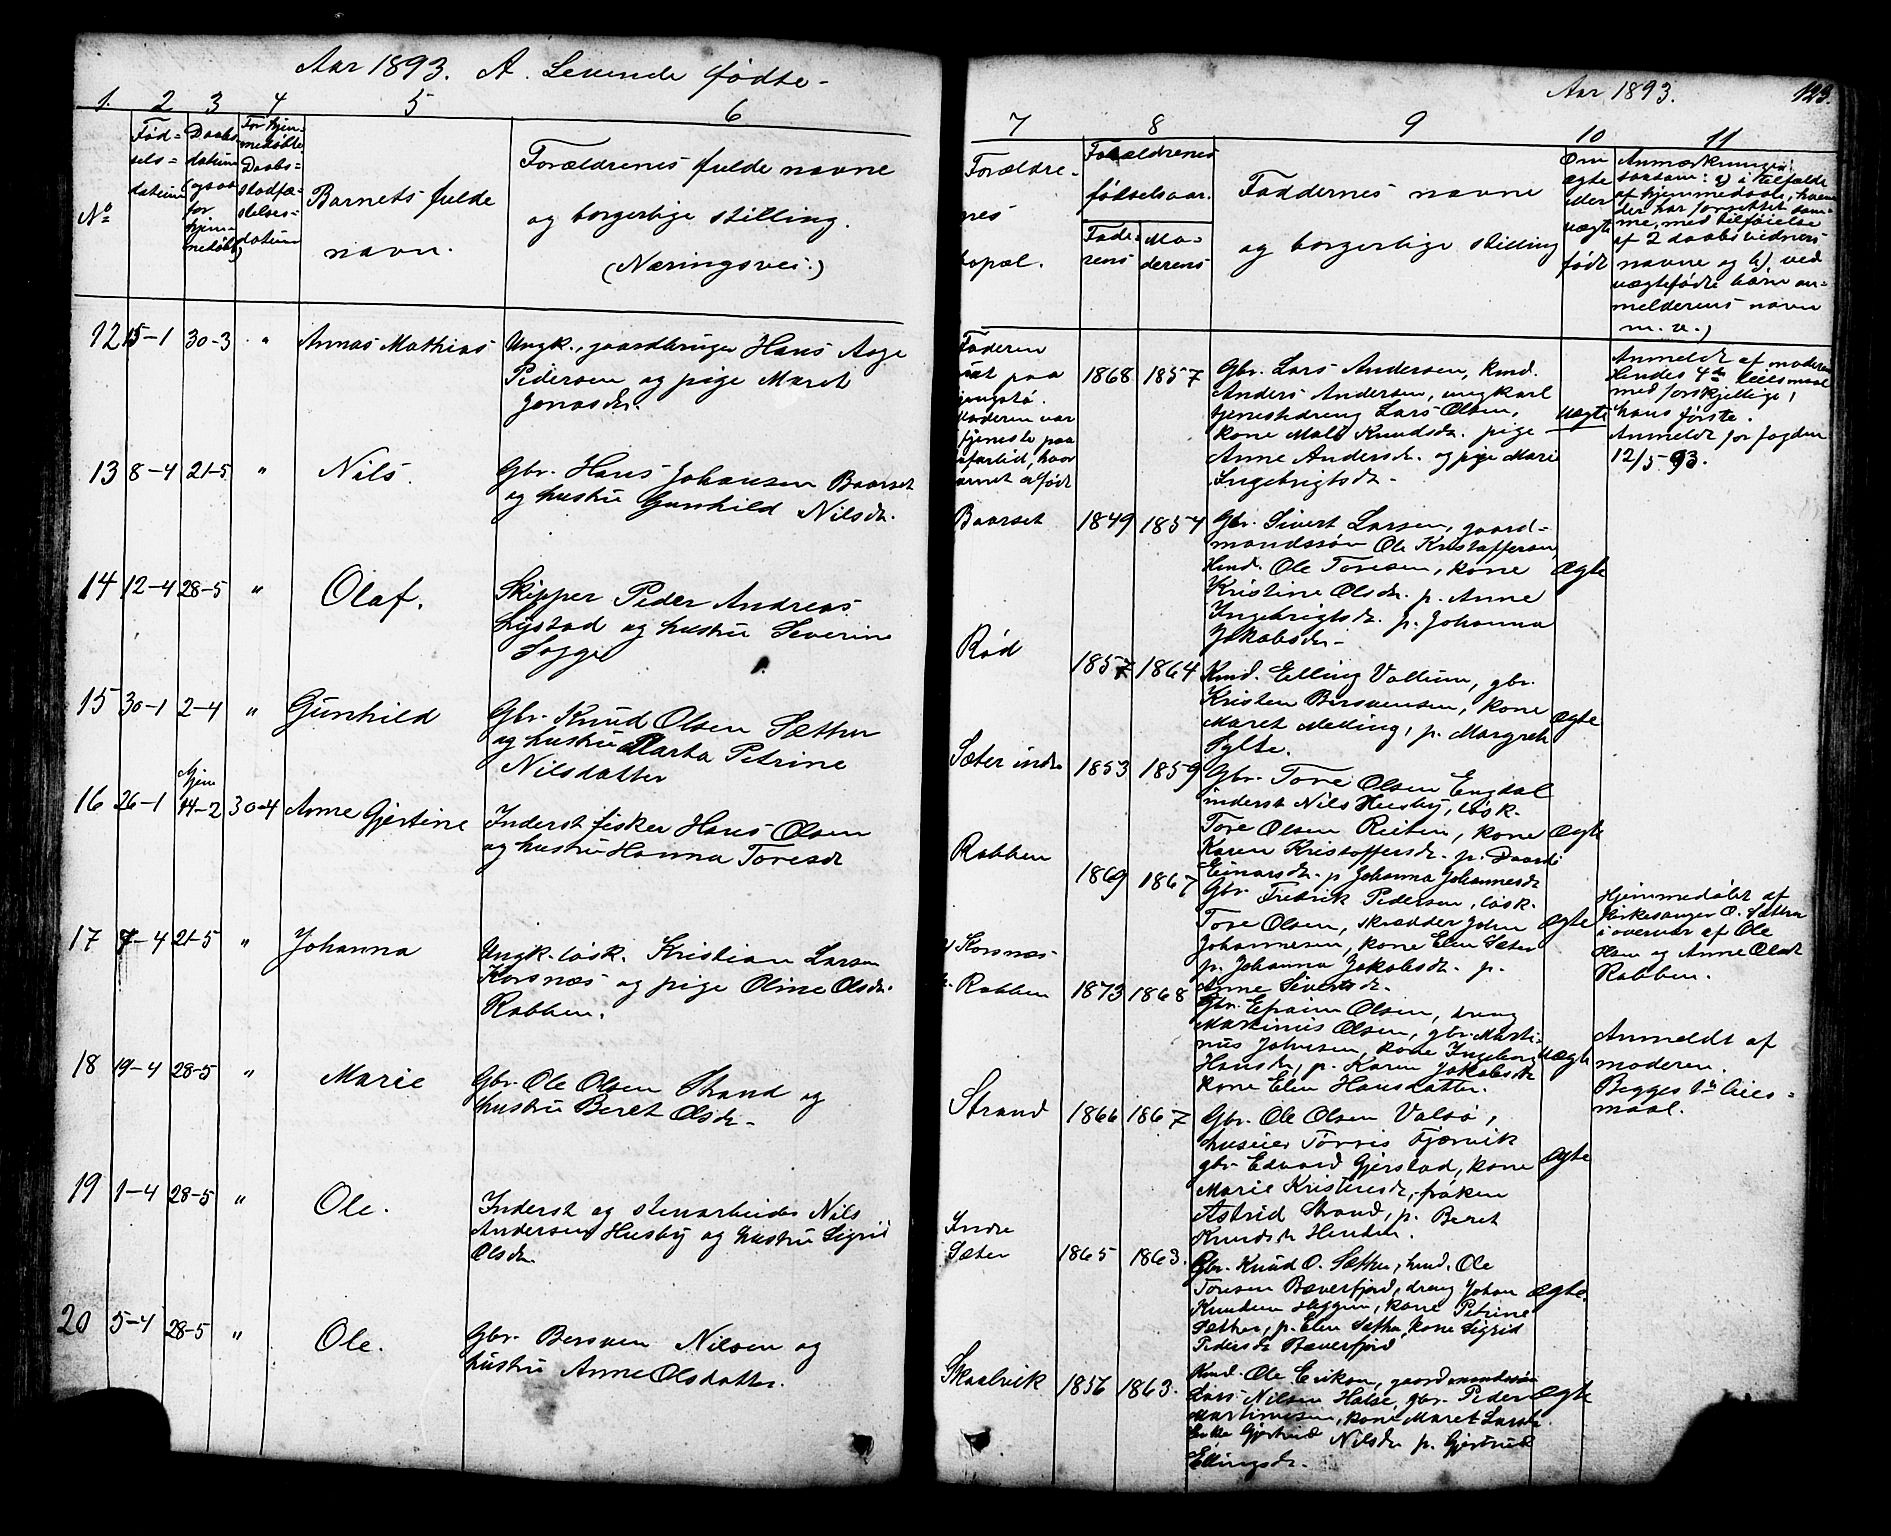 Aar 1893. A. Levende fødte-
1. 2 3 4 5 6
No
Fød-
sels-
datum
Daabs-
datum
(ogsaa
for
hjem-
medøbte)
For hjem-
medøbte
Daabs-
stadfæ-
stelses-
datum
Barnets fulde
navn.
Forældrenes fulde navne
og borgerlige stilling.
(Næringsvei.)
12 15-1 30-3 " Annas Mathias
Ungk., gaardbruger Hans Aage
Pedersen og pige Maret
Jonasdr.
13 8-4 21-5 " Nils.
Gbr. Hans Johansen Baarset
og hustru Gunhild Nilsdr.
14 12-4 28-5 " Olaf.
Skipper Peder Andreas
Lystad og hustru Severine
Sogge
15 30-1 2-4 " Gunhild
Gbr. Knud Olsen Sæther
og hustru Marta Petrine
Nilsdatter
16 26-1 Hjem 14-2 30-4 Anne Gjertine
Inderst fisker Hans Olsen
og hustru Hanna Toresdr
17 7-4 21-5 " Johanna
Ungk. løsk. Kristian Larsen
Korsnæs og pige Oline Olsdr.
Rabben.
18 19-4 28-5 " Marie
Gbr. Ole Olsen Strand og
hustru Beret Olsdr.
19 1-4 28-5 " Ole.
Inderst og stenarbeider Nils
Andersen Husby og hustru Sigrid
Olsdr.
20 5-4 28-5 " Ole.
Gbr. Bersven Nilsen og
hustru Anne Olsdatter.
Aar 1893. 123.
7 8 9 10 11
Forældre-
nes
bopæl.
Forældrenes
fødselsaar.
Fade-
rens
Mo-
derens
Faddernes navne
og borgerlige stilling
Om
ægte
eller
uægte
født
Anmærkninger
saasom: a) i tilfælde
af hjemmedaab, hvem
der har forrettet sam-
me, med tilføielse
af 2 daabsvidners
navne og b) ved
uægtefødte børn an-
melderens navn
m. v.)
Faderen
paa
Moderen var
tjeneste paa
hvor
barnet er født
1868 1857
Gbr. Lars Andersen, kmd.
Anders Andersen, ungkarl
tjenestedreng Lars Olsen,
kone Mali Knudsdr. pige
Anne Andersdr. og pige Marie
Ingebrigtsdr.
uægte
Anmeldt af moderen
Hendes 4de leiermaal
med forskjellige,
hans første.
Anmeldt for fogden
12/5-93.
Baarset 1849 1854
Gbr. Sivert Larsen, gaard-
mandssøn Ole Kristoffersen,
Kmd. Ole Toresen, kone
Kristine Olsdr. p. Anne
Ingebrigtsdr. p. Johanna
Jakobsdr.
Ægte
Rød 1857 1864
Kmd. Elling Vullum, gbr.
Kristen Bersvensen, kone
Maret Melling, p. Margrete
Sylte.
Ægte
Sæter indre 1853 1859
Gbr. Tore Olsen Engdal
inderst Nils Husby, løsk.
Tore Olsen Reiten, kone
Karen Kristoffersdr. p.
Einarsdr. p. Johanna Johannesdr
Ægte
Rabben 1869 1867
Gbr. Fredrik Pedersen, løsk.
Tore Olsen, skrædder John
Johannesen, kone Elen Sæter
p. Johanna Jakobsdr. p.
Anne Sivertsdr.
Ægte
Hjemmedøbt af
Kirkesanger O. Sæther
i overvær af Ole
Olsen og Anne Olsdr
Rabben.
Korsnæs
Rabben 1873 1868
Gbr. Efraim Olsen, dreng
Martinus Olsen, gbr. Marti-
nus Johnsen, kone Ingeborg
Hansdr, p. Karen Jakobsdr
kone Elen Hansdatter.
uægte
Anmeldt af
moderen.
Begges 1ste leier-
maal.
Strand 1866 1867
Gbr. Ole Olsen Valsø,
husmand Torris Fjærvik
gbr. Edvard Gjerstad, kone
Marie Kristensdr., frøken
Astrid Strand, p. Beret
Knudsdr Henden.
Ægte
Indre
Sæter 1865 1863.
Gbr. Knud O. Sæther, kmd. Ole
Toresen Bæverfjord, dreng Johan
Knudsen Heggem, kone Petrine
Sæther, p. Elen Sæther, kone Sigrid
Pedersdr Bæverfjord
Ægte.
Skaalvik 1856 1863.
Kmd. Ole Eriksen, gaardmandssøn
Lars Nilsen Halse, gbr. Peder
Martinusen, kone Maret Larsdr.
Enke Gjertrud Nilsdr p. Gjertrud
Ellingsdr.
Ægte